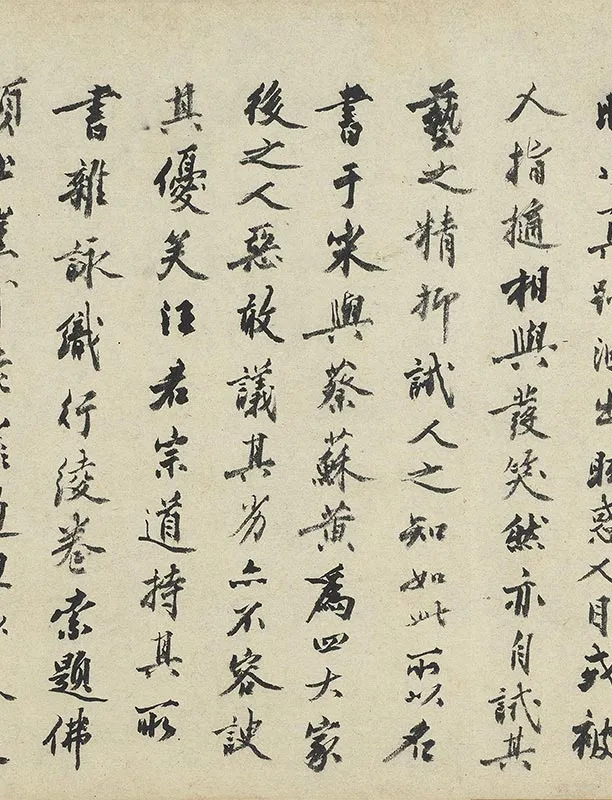 出眩惑人目或被
人指擿相與發笑然亦自試其
藝之精抑試人之知如此所以名
書于宋與蔡蘇黃爲四大家
後之人惡敢議其劣亦不容諛
其優矣汪君宗道持其所
書雜詠織行綾卷索題佛